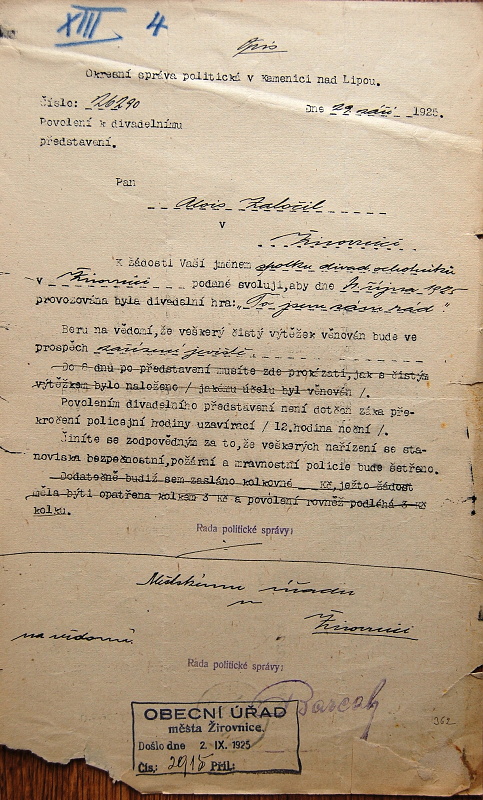 XIII 4
Opis
Okresní správa politická v Kamenici nad Lipou.
Číslo: 26290 Dne 29 září 1925.
Povolení k divadelnímu
představení.
Pan
Alois Zaločil
v
Žirovnici
K žádosti Vaší jménem spolku divad. ochotníků
v Žirovnici podané svoluji, aby dne 4. října 1925
provozována byla divadelní hra: „To jsem sám rád"
Beru na vědomí, že veškerý čistý výtěžek věnován bude ve
prospěch zařízení jeviště.
Do 8 dnů po představení musíte zde prokázati, jak s čistým
výtěžkem bylo naloženo / jakému účelu byl věnován /.
Povolením divadelního představení není dotčen zákaz pře-
kročení policejní hodiny uzavírací / 12.hodina noční /.
Činíte se zodpovědným za to, že veškerých nařízení se sta-
noviska bezpečnostní, požární a mravnostní policie bude šetřeno.
Dodatečně budiž sem zasláno kolkovné Kč, ježto žádost
měla býti opatřena kolkem 3 Kč a povolení rovněž podléhá 3 Kč
kolku.
Rada politické správy:
Městskému úřadu
v
Žirovnici
na vědomí.
Rada politické správy:
OBECNÍ ÚŘAD
města Žirovnice.
Došlo dne 2. IX. 1925
Čís.: 2915 Příl.:
362